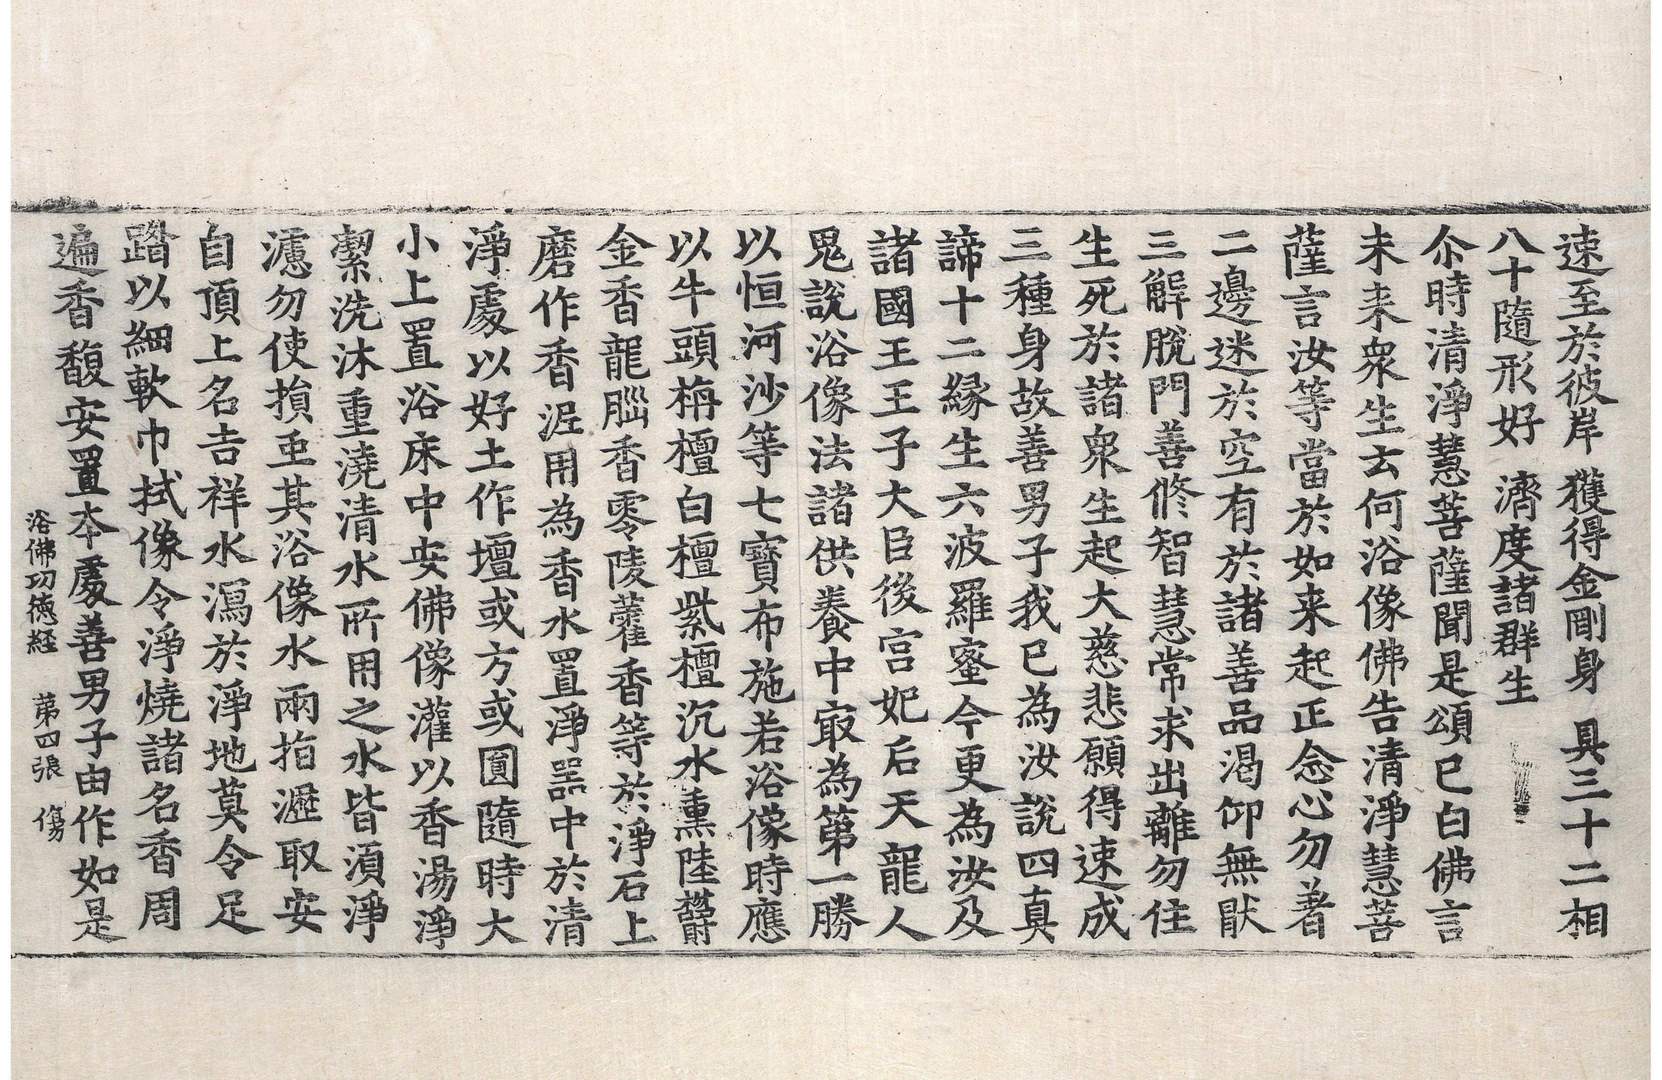 速至於彼岸　獲得金剛身　具三十二相
八十隨形好　濟度諸群生
尒時清淨慧菩薩聞是頌已白佛言
未来衆生云何浴像佛告清淨慧菩
薩言汝等當於如来起正念心勿著
二邊迷於空有於諸善品渴仰無猒
三解脫門善修智慧常求出離勿住
生死於諸衆生起大慈悲願得速成
三種身故善男子我已為汝說四真
諦十二緣生六波羅蜜今更為汝及
諸國王王子大臣後宮妃后天龍人
鬼說浴像法諸供養中㝡為第一勝
以恒河沙等七寶布施若浴像時應
以牛頭栴檀白檀紫檀沉水熏陸欝
金香龍腦香零陵藿香等於淨石上
磨作香泥用為香水置淨器中於清
淨處以好土作壇或方或圓隨時大
小上置浴床中安佛像灌以香湯淨
潔洗沐重澆清水所用之水皆須淨
濾勿使損虫其浴像水兩指瀝取安
自頂上名吉祥水瀉於淨地莫令足
踏以細軟巾拭像令淨燒諸名香周
遍香馥安置本處善男子由作如是
浴佛功德経　第四張　傷